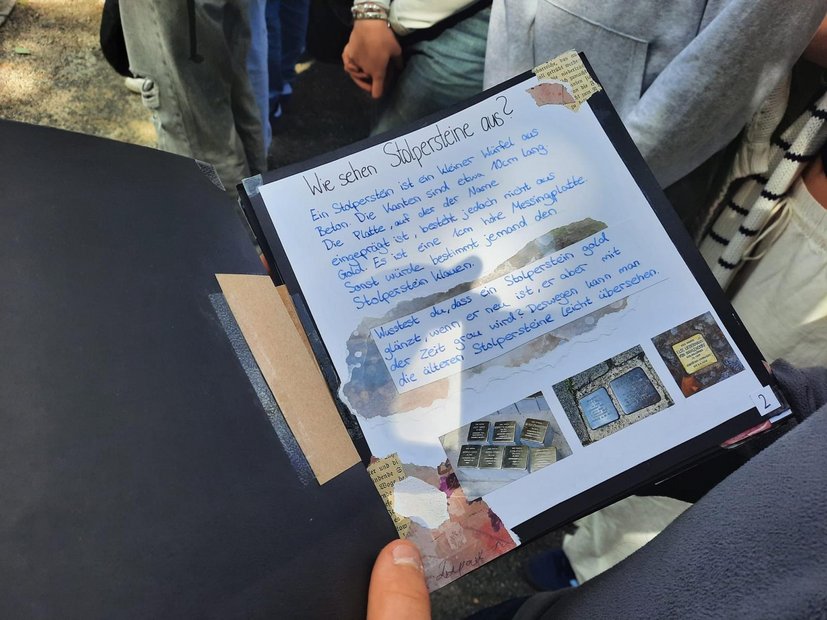 Wie sehen Stolpersteine aus?
Ein Stolperstein ist ein kleiner Würfel aus
Beton. Die Kanten sind etwa 10cm lang.
Die Platte, auf der der Name
eingeprägt ist, besteht jedoch nicht aus
Gold. Es ist eine 1cm hohe Messingplatte.
Sonst würde bestimmt jemand den
Stolperstein klauen.
Wusstest du, dass ein Stolperstein gold
glänzt, wenn er neu ist, er aber mit
der Zeit grau wird? Deswegen kann man
die älteren Stolpersteine leicht übersehen.
2